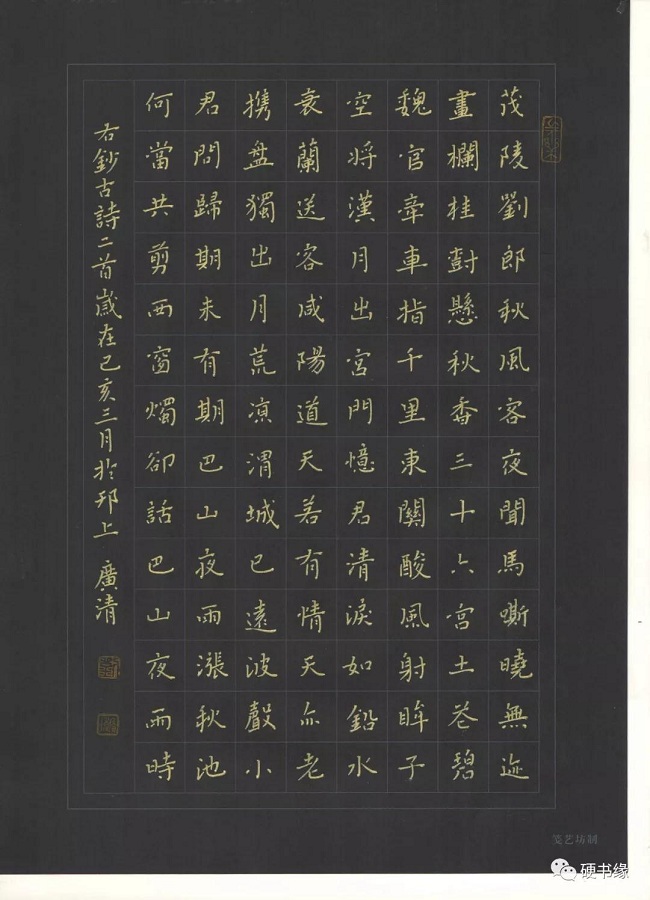 茂陵劉郎秋風客夜聞馬嘶曉無迹
畫欄桂樹懸秋香三十六宮土花碧
魏官牽車指千里東關酸風射眸子
空將漢月出宮門憶君清淚如鉛水
衰蘭送客咸陽道天若有情天亦老
携盤獨出月荒凉渭城已遠波聲小
君問歸期未有期巴山夜雨漲秋池
何當共剪西窗燭卻話巴山夜雨時
右鈔古詩二首歲在己亥三月於邗上 廣清
笺艺坊制
硬书缘